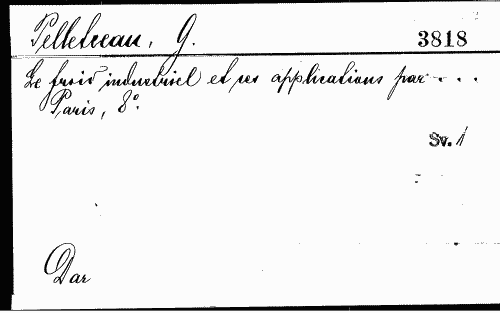 Pelletreau, G. 3818
Le froid industriel et ses applications par . . .
Paris, 8°.
Sv. 1
Dar